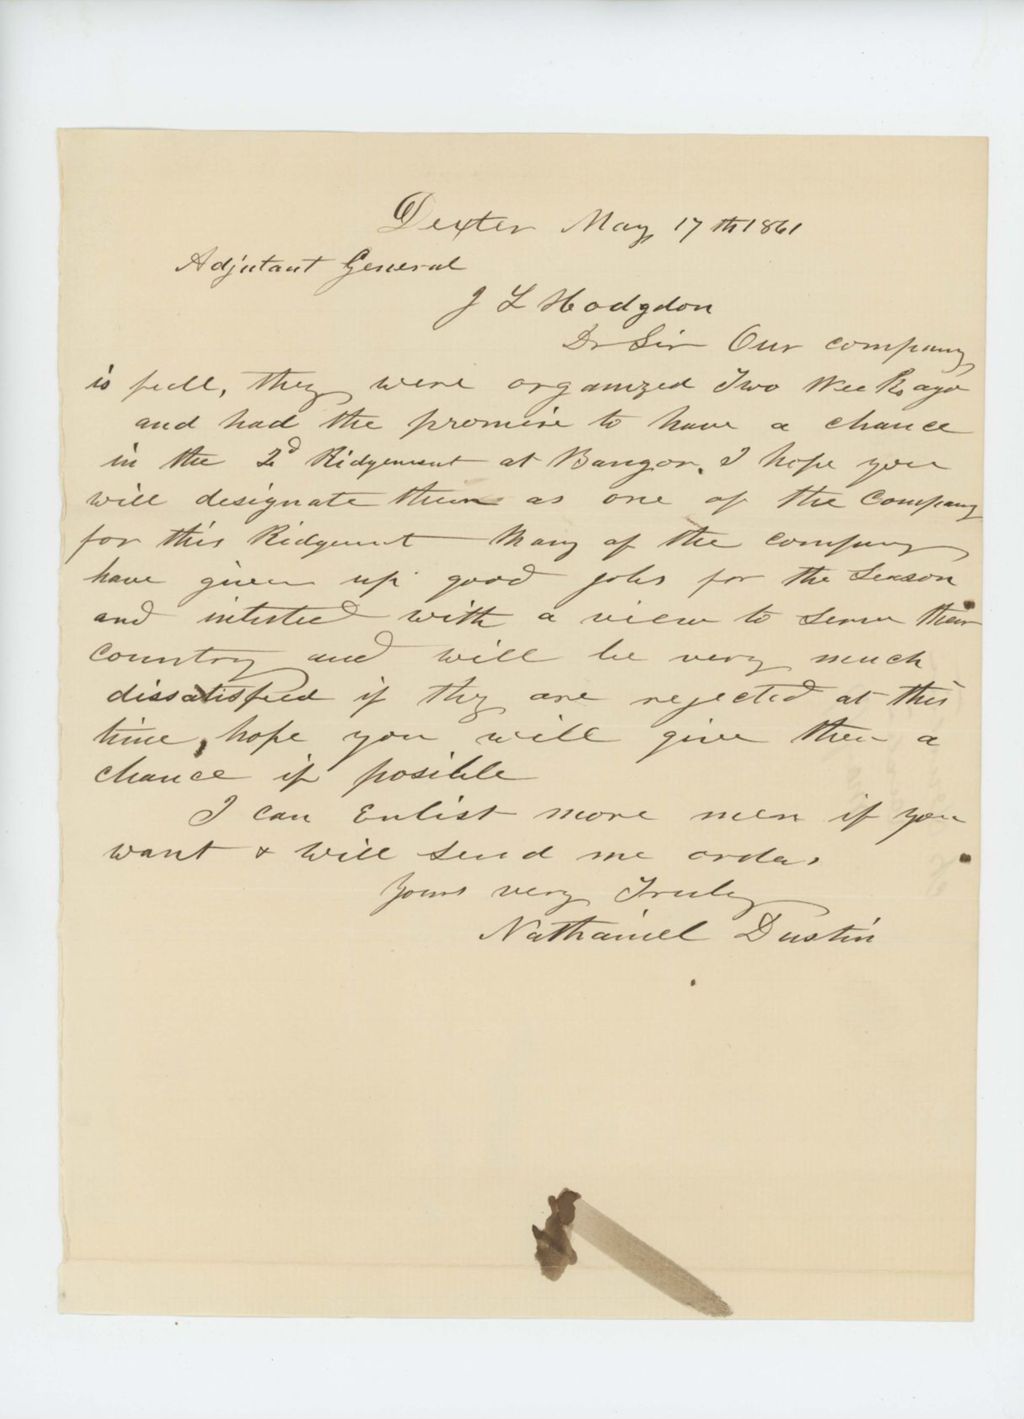 Dexter May 17th 1861
Adjutant General
J L Hodgdon
Dr Sir Our company
is full, they were organized Two Weeks ago
and had the promise to have a chance
in the 2d Ridgement at Bangor. I hope you
will designate them as one of the Company
for this Ridgement Many of the company
have given up good jobs for the Season
and intisted with a view to serve their
country and will be very much
dissatisfied if they are rejected at this
time, hope you will give them a
chance if posible
I can Enlist more men if you
want & will send me orders
Yours very Truly
Nathaniel Dustin